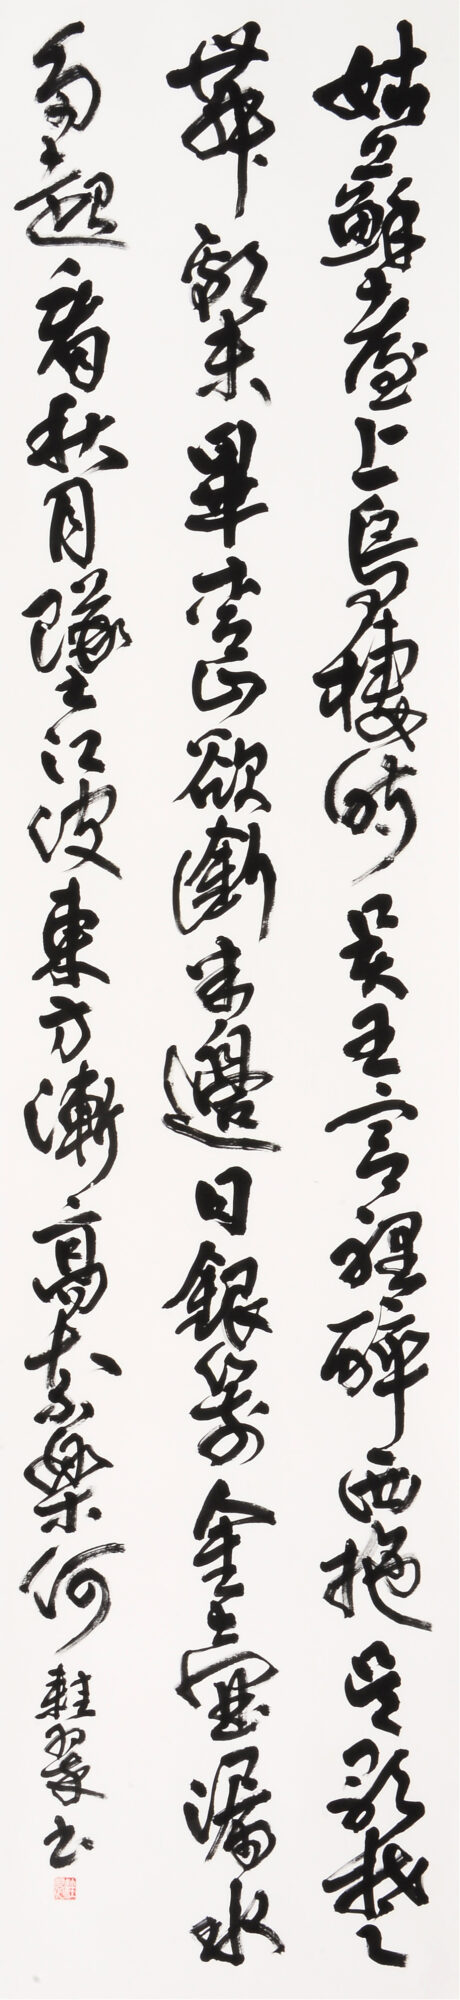 姑蘇臺上烏棲時吳王宮裡醉西施吳歌楚
舞歡未畢青山欲銜半邊日銀箭金壺漏水
多起看秋月墜江波東方漸高奈樂何 軽翠書